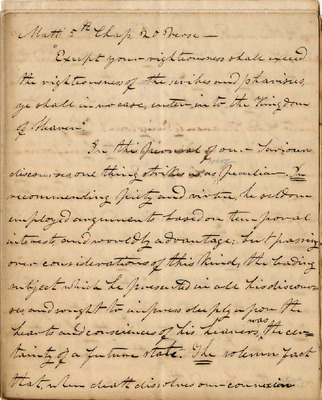 Matt 5th Chap. 20 Verse —
"Except your righteousness shall exceed
the righteousness of the scribes and pharisees,
ye shall in no case, enter into the Kingdom
of Heaven"
In the perusal of our Saviours
discourses one thing strikes us as very peculiar. In
recommending piety and virtue, he seldom
employed arguments based on temporal
interest, and worldly advantage; but passing
over considerations of this kind, the leading
subject which he presented in all his discour-
ses, and sought to impress deeply upon the
hearts and consciences of his hearers, was the cer-
tainty of a future state. The solemn fact
that when death dissolves our connexion